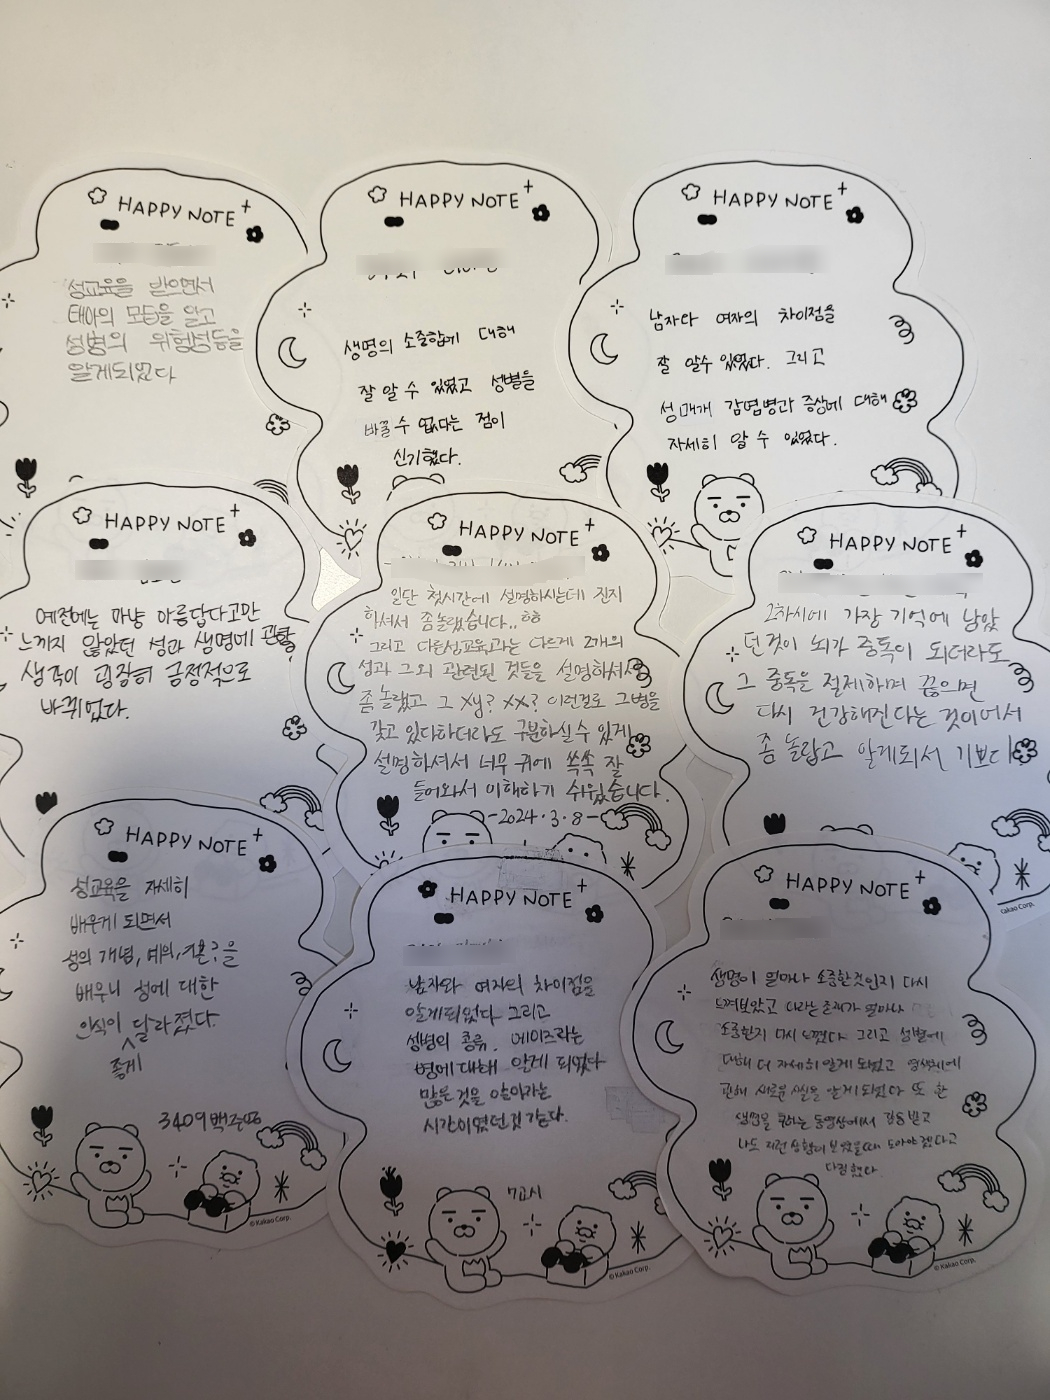 HAPPY NOTE
성교육을 받으면서
태아의 모습을 알고
성병의 위험성등을
알게되었다
HAPPY NOTE
생명의 소중함에 대해
잘 알 수 있었고 성별을
바꿀 수 없다는 점이
신기했다.
HAPPY NOTE
남자다 여자의 차이점을
잘 알수 있었다. 그리고
성매개 감염병과 증상에 대해
자세히 알 수 있었다.
HAPPY NOTE
예전에는 마냥 아름답다고만
느끼지 않았던 성과 생명에 관한
생각이 굉장히 긍정적으로
바뀌었다.
HAPPY NOTE
일단 첫시간에 설명하시는데 진지
하셔서 좀놀랐습니다..ㅎㅎ
그리고 다른성교육과는 다르게 2개의
성과 그외 관련된 것들을 설명하셔서
좀 놀랐고 그 xy? xx? 이런걸로 그병을
갖고 있다하더라도 구분하실수 있게
설명하셔서 너무 귀에 쏙쏙 잘
들어와서 이해하기 쉬웠습니다.
-2024.3.8-
HAPPY NOTE
2차시에 가장 기억에 남았
던것이 뇌가 중독이 되더라도
그 중독을 절제하며 끊으면
다시 건강해진다는 것이어서
좀 놀랍고 알게되서 기쁘다
kakao Corp.
HAPPY NOTE
성교육을 자세히
배운게 되면서
성의 개념, 예의, 결혼?을
배우니 성에 대한
인식이 달라졌다.
좋게
3409 백준
© Kakao Corp.
HAPPY NOTE
남자와 여자의 차이점을
알게되었다 그리고
성병의 종류, 에이즈라는
병에대해 알게 되었다
많은 것을 알아가는
시간이였던것 같다.
7교시
© Kakao Corp.
HAPPY NOTE
생명이 얼마나 소중한것인지 다시
느껴보았고 나라는 존재가 얼마나
소중한지 다시 느꼈다 그리고 성별에
대해 더 자세히 알게 되었고 염색체에
관해 새로운 사실을 알게 되었다 또 한
생명을 구하는 동영상에서 감동받고
나도 저런 상황이 보였을때 도와야겠다고
다짐했다.
© Kakao Corp.